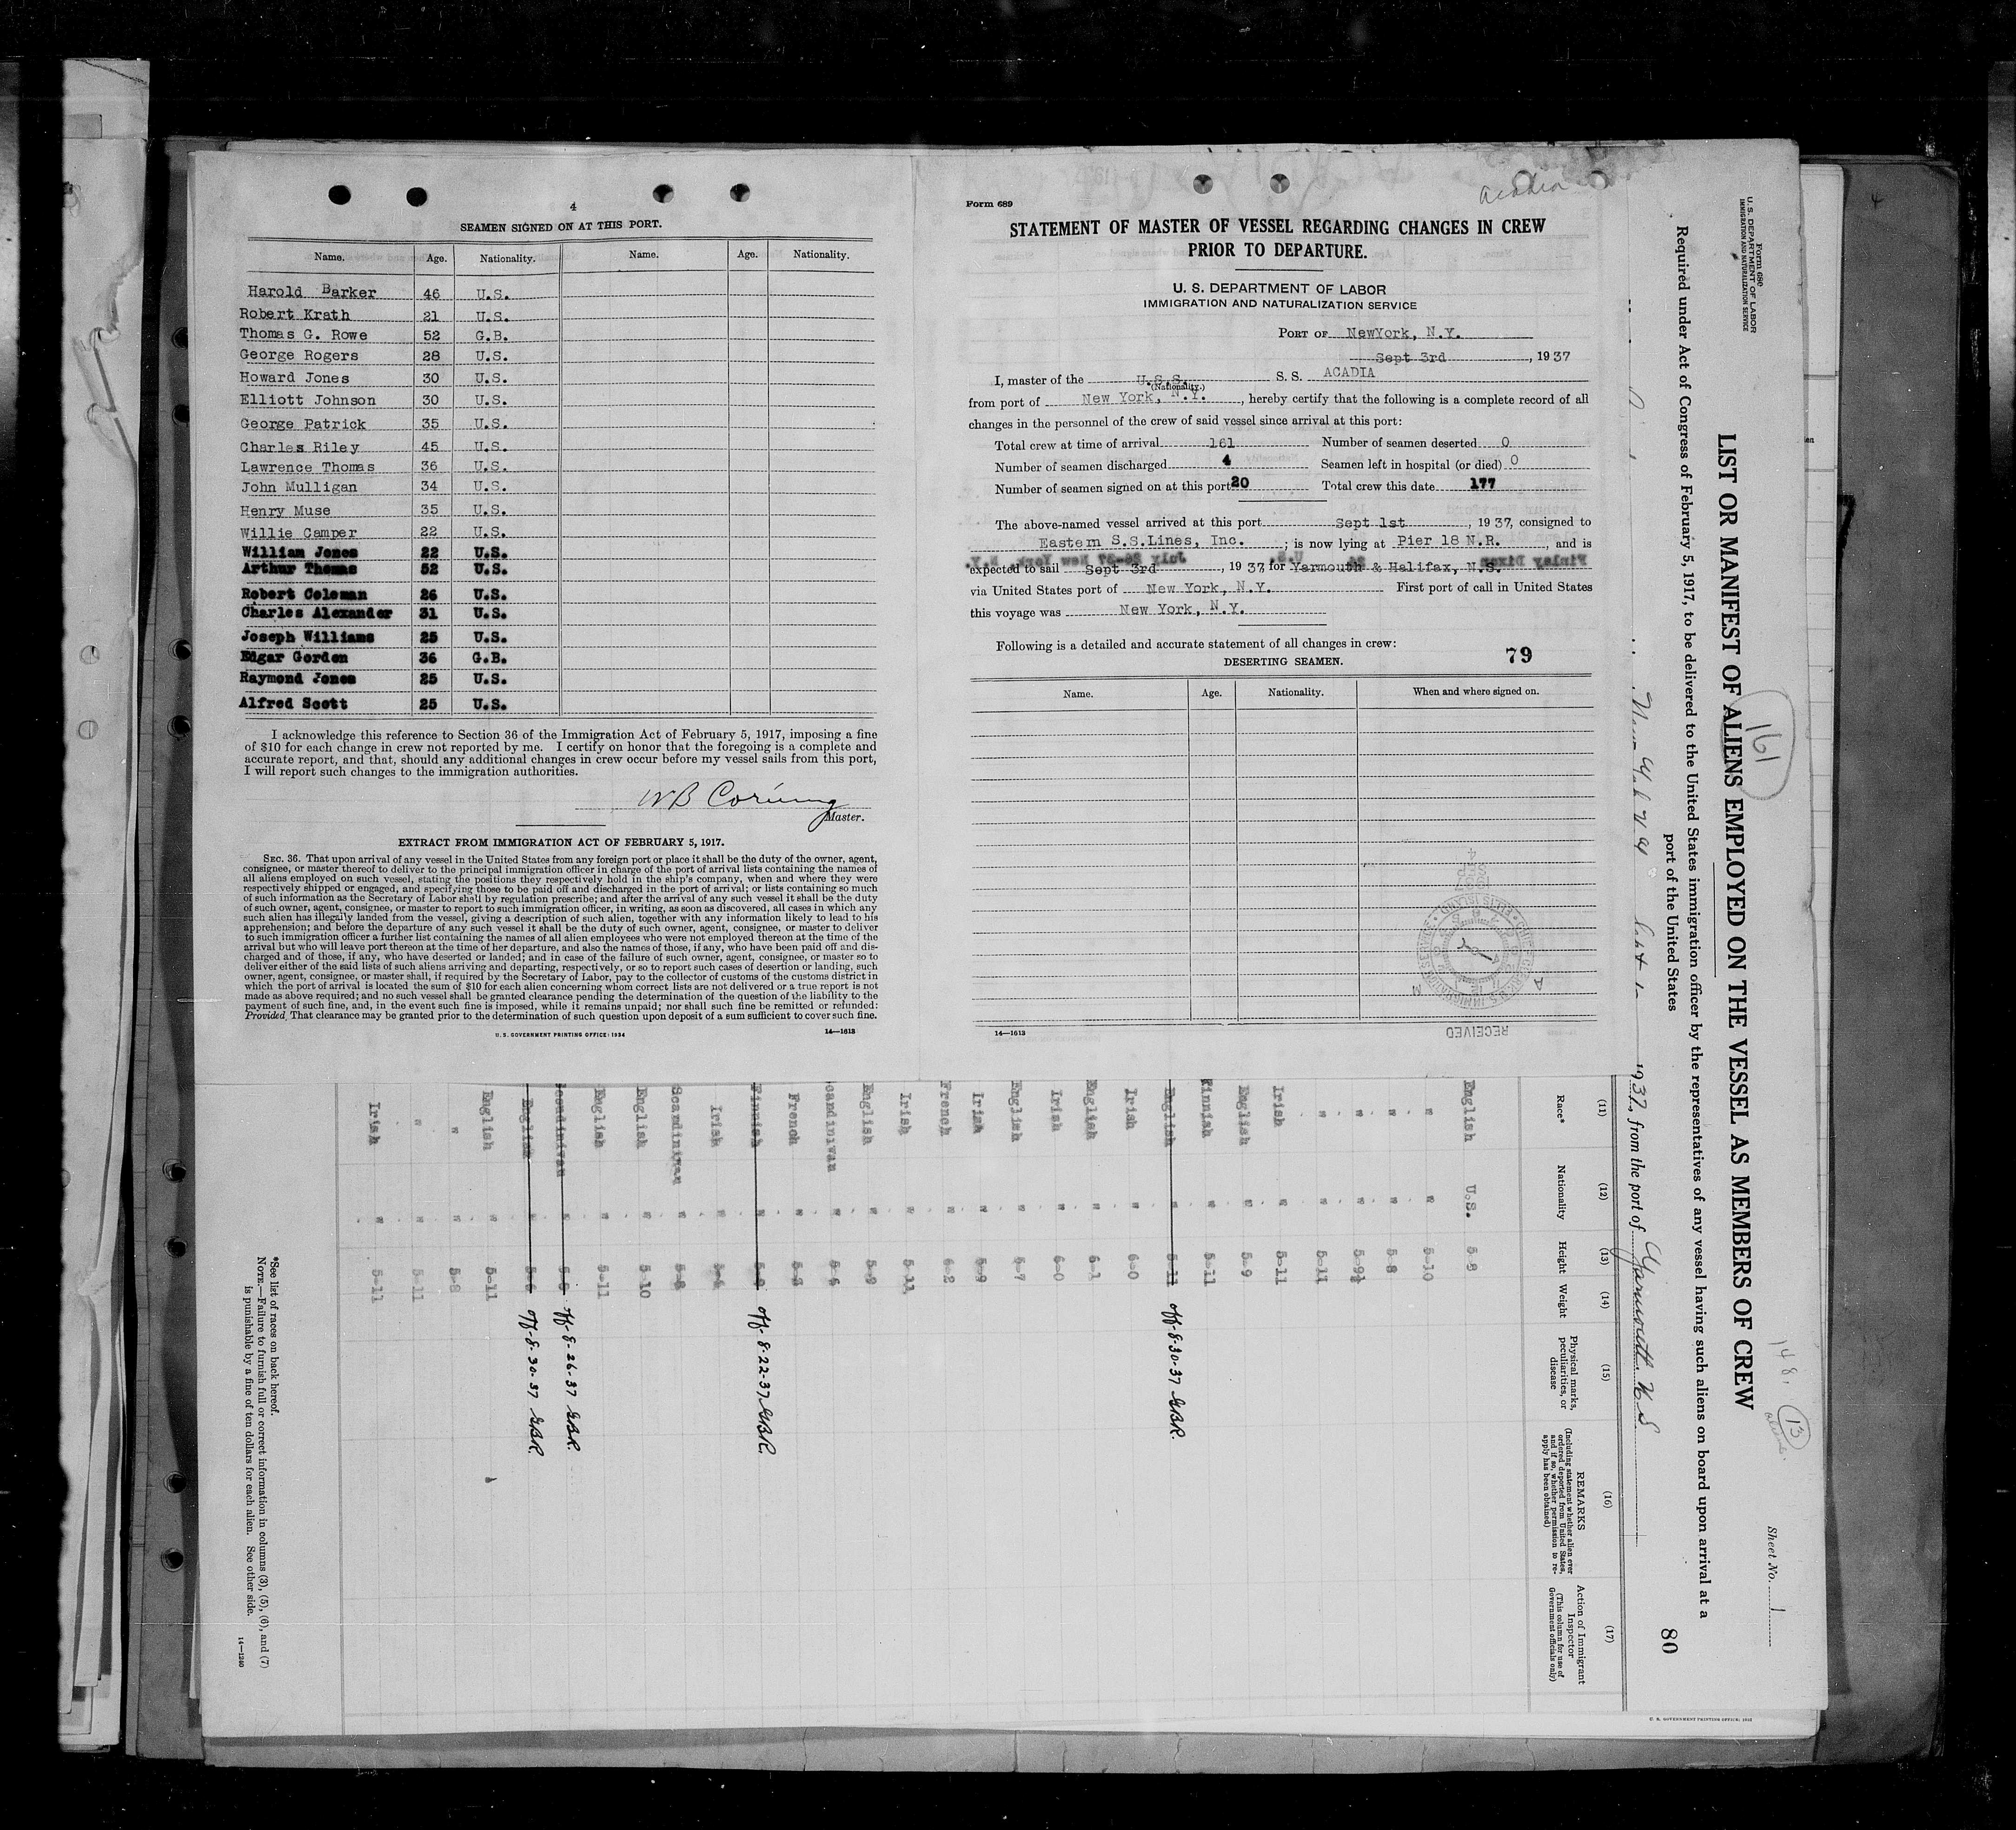 4
SEAMEN SIGNED ON AT THIS PORT.
Name. Age. Nationality. Name. Age. Nationality.
Harold Barker 46 U.S.
Robert Krath 21 U.S.
Thomas G. Rowe 52 G.B.
George Rogers 28 U.S.
Howard Jones 30 U.S.
Elliott Johnson 30 U.S.
George Patrick 35 U.S.
Charles Riley 45 U.S.
Lawrence Thomas 36 U.S.
John Mulligan 34 U.S.
Henry Muse 35 U.S.
Willie Camper 22 U.S.
William Jones 22 U.S.
Arthur Thomas 52 U.S.
Robert Coleman 26 U.S.
Charles Alexander 31 U.S.
Joseph Williams 25 U.S.
Edgar Gordon 36 G.B.
Raymond Jones 25 U.S.
Alfred Scott 25 U.S.
I acknowledge this reference to Section 36 of the Immigration Act of February 5, 1917, imposing a fine
of $10 for each change in crew not reported by me. I certify on honor that the foregoing is a complete and
accurate report, and that, should any additional changes in crew occur before my vessel sails from this port,
I will report such changes to the immigration authorities.
WB Corning
Master.
EXTRACT FROM IMMIGRATION ACT OF FEBRUARY 5, 1917.
SEC. 36. That upon arrival of any vessel in the United States from any foreign port or place it shall be the duty of the owner, agent,
consignee, or master thereof to deliver to the principal immigration officer in charge of the port of arrival lists containing the names of
all aliens employed on such vessel, stating the positions they respectively hold in the ship's company, when and where they were
respectively shipped or engaged, and specifying those to be paid off and discharged in the port of arrival; or lists containing so much
of such information as the Secretary of Labor shall by regulation prescribe; and after the arrival of any such vessel it shall be the duty
of such owner, agent, consignee, or master to report to such immigration officer, in writing, as soon as discovered, all cases in which any
such alien has illegally landed from the vessel, giving a description of such alien, together with any information likely to lead to his
apprehension; and before the departure of any such vessel it shall be the duty of such owner, agent, consignee, or master to deliver
to such immigration officer a further list containing the names of all alien employees who were not employed thereon at the time of the
arrival but who will leave port thereon at the time of her departure, and also the names of those, if any, who have been paid off and dis-
charged and of those, if any, who have deserted or landed; and in case of the failure of such owner, agent, consignee, or master so to
deliver either of the said lists of such aliens arriving and departing, respectively, or so to report such cases of desertion or landing, such
owner, agent, consignee, or master shall, if required by the Secretary of Labor, pay to the collector of customs of the customs district in
which the port of arrival is located the sum of $10 for each alien concerning whom correct lists are not delivered or a true report is not
made as above required; and no such vessel shall be granted clearance pending the determination of the question of the liability to the
payment of such fine, and, in the event such fine is imposed, while it remains unpaid; nor shall such fine be remitted or refunded:
Provided, That clearance may be granted prior to the determination of such question upon deposit of a sum sufficient to cover such fine.
U. S. GOVERNMENT PRINTING OFFICE: 1934 14—1613
Acadia
Form 689
STATEMENT OF MASTER OF VESSEL REGARDING CHANGES IN CREW
PRIOR TO DEPARTURE.
U. S. DEPARTMENT OF LABOR
IMMIGRATION AND NATURALIZATION SERVICE
PORT OF NewYork, N.Y.
Sept 3rd, 1937
I, master of the U.S.S. S. S. ACADIA
(Nationality.)
from port of New York, N.Y., hereby certify that the following is a complete record of all
changes in the personnel of the crew of said vessel since arrival at this port:
Total crew at time of arrival 161 Number of seamen deserted 0
Number of seamen discharged 4 Seamen left in hospital (or died) 0
Number of seamen signed on at this port 20 Total crew this date 177
The above-named vessel arrived at this port Sept 1st, 1937, consigned to
Eastern S.S.Lines, Inc.; is now lying at Pier 18 N.R., and is
expected to sail Sept 3rd, 1937, for Yarmouth & Halifax, N.S.
via United States port of New York, N.Y. First port of call in United States
this voyage was New York, N.Y.
Following is a detailed and accurate statement of all changes in crew:
DESERTING SEAMEN. 79
Name. Age. Nationality. When and where signed on.
RECEIVED
14—1613
Form 686
U. S. DEPARTMENT OF LABOR
IMMIGRATION AND NATURALIZATION SERVICE
161
148,
13
aliens.
Sheet No. 1
LIST OR MANIFEST OF ALIENS EMPLOYED ON THE VESSEL AS MEMBERS OF CREW
Required under Act of Congress of February 5, 1917, to be delivered to the United States immigration officer by the representatives of any vessel having such aliens on board upon arrival at a
port of the United States
80
1937, from the port of Yarmouth N S
(11) (12) (13) (14) (15) (16) (17)
Race* Nationality Height Weight
Physical marks, peculiarities, or disease
REMARKS
(Including statement whether alien ever ordered deported from United States, and if so, whether permission to re-apply has been obtained)
Action of Immigrant Inspector
(This column for use of Government officials only)
English U.S. 5-8
" " 5-10
" " 5-8
" " 5-9½
" " 5-11
Irish " 5-11
English " 5-9
Finnish " 5-11
English " 5-11 off-8-30-37 GBR.
Irish " 6-0
English " 6-1
Irish " 6-0
English " 5-7
Irish " 5-9
French " 6-2
Irish " 5-11
English " 5-9
Scandinivan "
French "
Finnish " off- 8-22-37 GBR.
Irish "
Scandinivan " 5-8
English " 5-10
English " 5-11
Scandinivan " off- 8-26-37 GBR.
English " off-8-30-37 GBR.
English " 5-11
" " 5-8
" " 5-11
Irish " 5-11
*See list of races on back hereof.
NOTE.—Failure to furnish full or correct information in columns (3), (5), (6), and (7)
is punishable by a fine of ten dollars for each alien. See other side.
14—1240
U. S. GOVERNMENT PRINTING OFFICE: